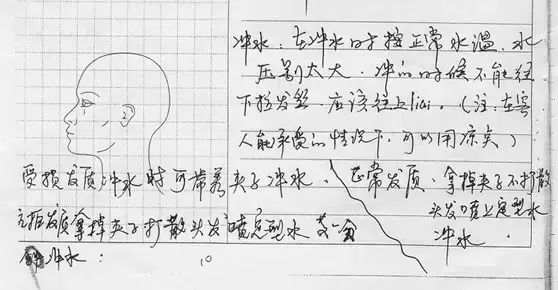 冲水：在冲水时按正常水温．水
压别太大．冲的时候不能往
下拉发丝．应该往上liui．（注：在客
人能承受的情况下．可以用凉点）
受损发质冲水时可带着夹子冲水．正常发质．拿掉夹子不打散
头发喷上定型水
冲水．
抗拒发质拿掉夹子打散头发喷定型水
冲水：
10